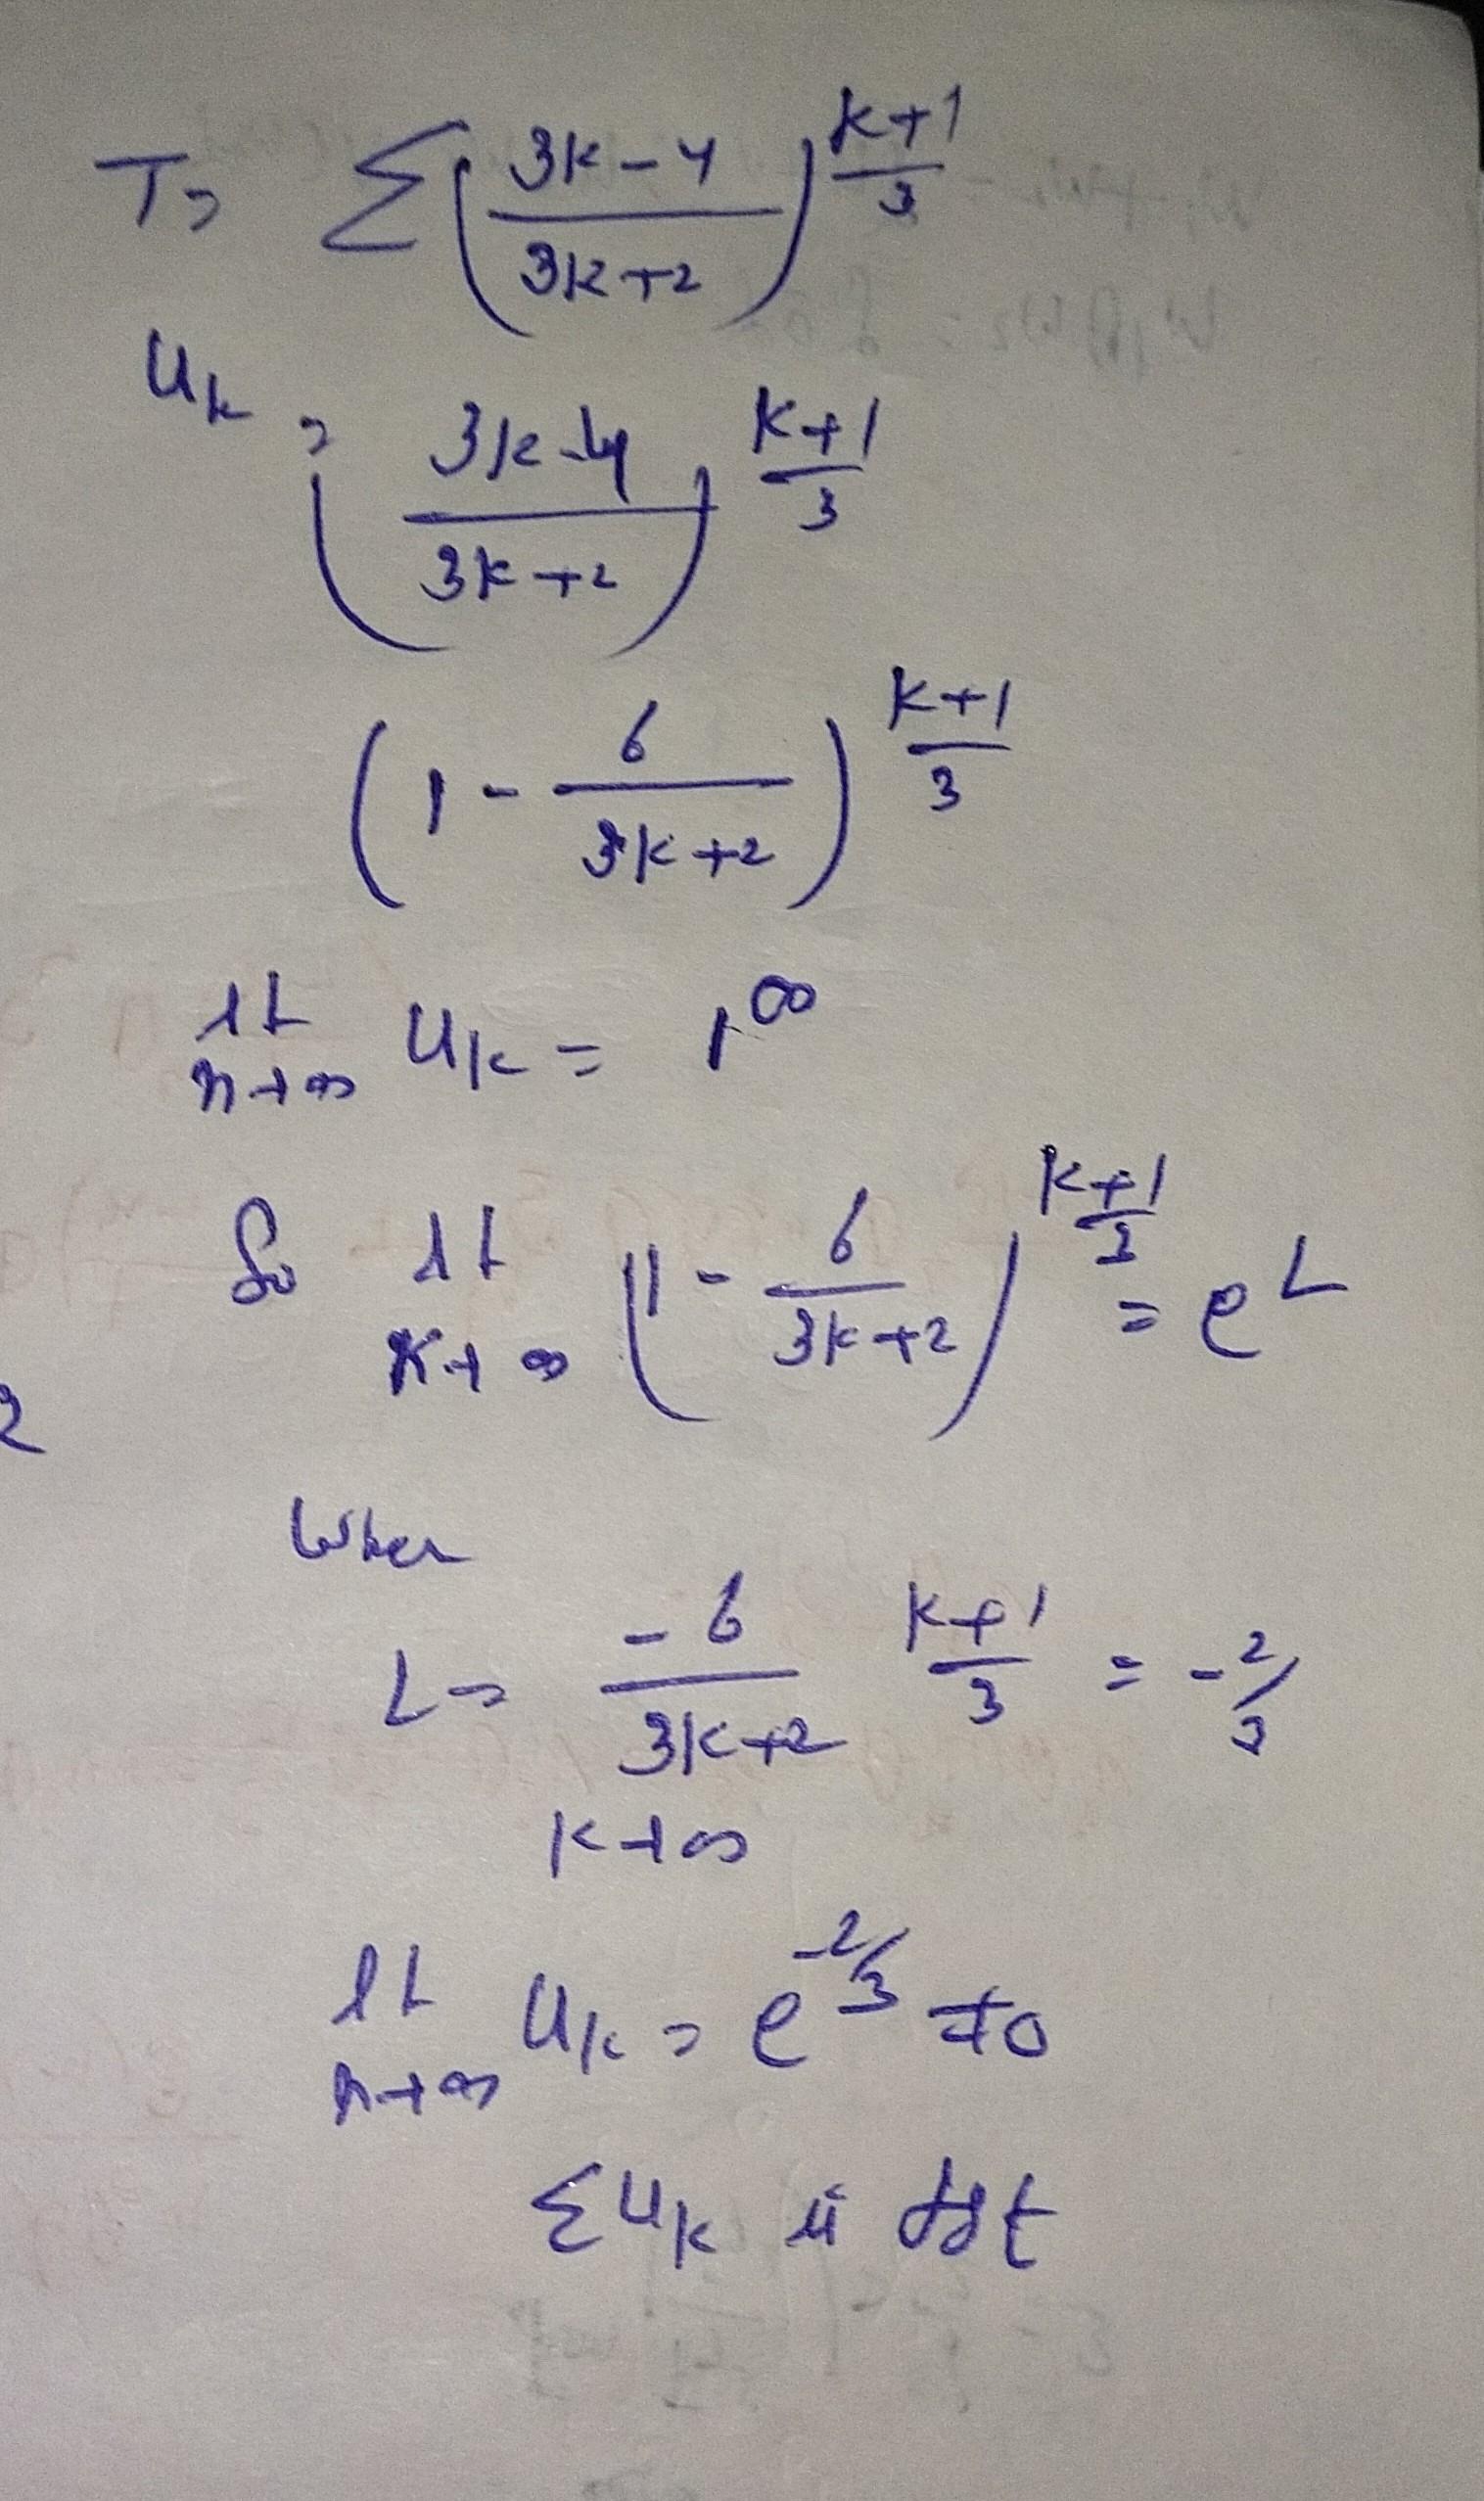 T = Σ ( (3k-4)/(3k+2) )^((k+1)/3)
U_k = ( (3k-4)/(3k+2) )^((k+1)/3)
( 1 - 6/(3k+2) )^((k+1)/3)
lt n→∞ U_k = 1^∞
So lt k→∞ ( 1 - 6/(3k+2) )^((k+1)/3) = e^L
When
L = -6/(3k+2) (k+1)/3 = -2/3
k→∞
lt n→∞ U_k = e^(-2/3) ≠ 0
Σ U_k is